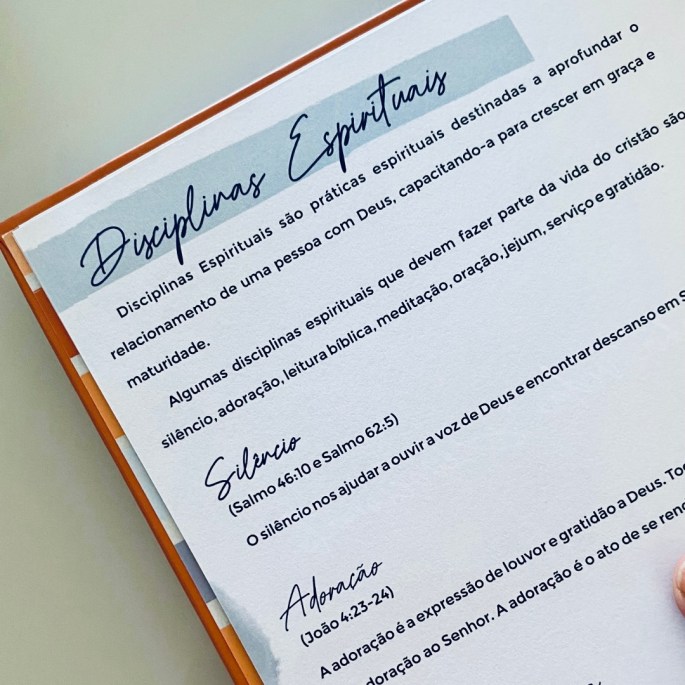 Disciplinas Espirituais
Disciplinas Espirituais são práticas espirituais destinadas a aprofundar o
relacionamento de uma pessoa com Deus, capacitando-a para crescer em graça e
maturidade.
Algumas disciplinas espirituais que devem fazer parte da vida do cristão são
silêncio, adoração, leitura bíblica, meditação, oração, jejum, serviço e gratidão.
Silêncio
(Salmo 46:10 e Salmo 62:5)
O silêncio nos ajudar a ouvir a voz de Deus e encontrar descanso em
Adoração
(João 4:23-24)
A adoração é a expressão de louvor e gratidão a Deus.
doração ao Senhor. A adoração é o ato de se